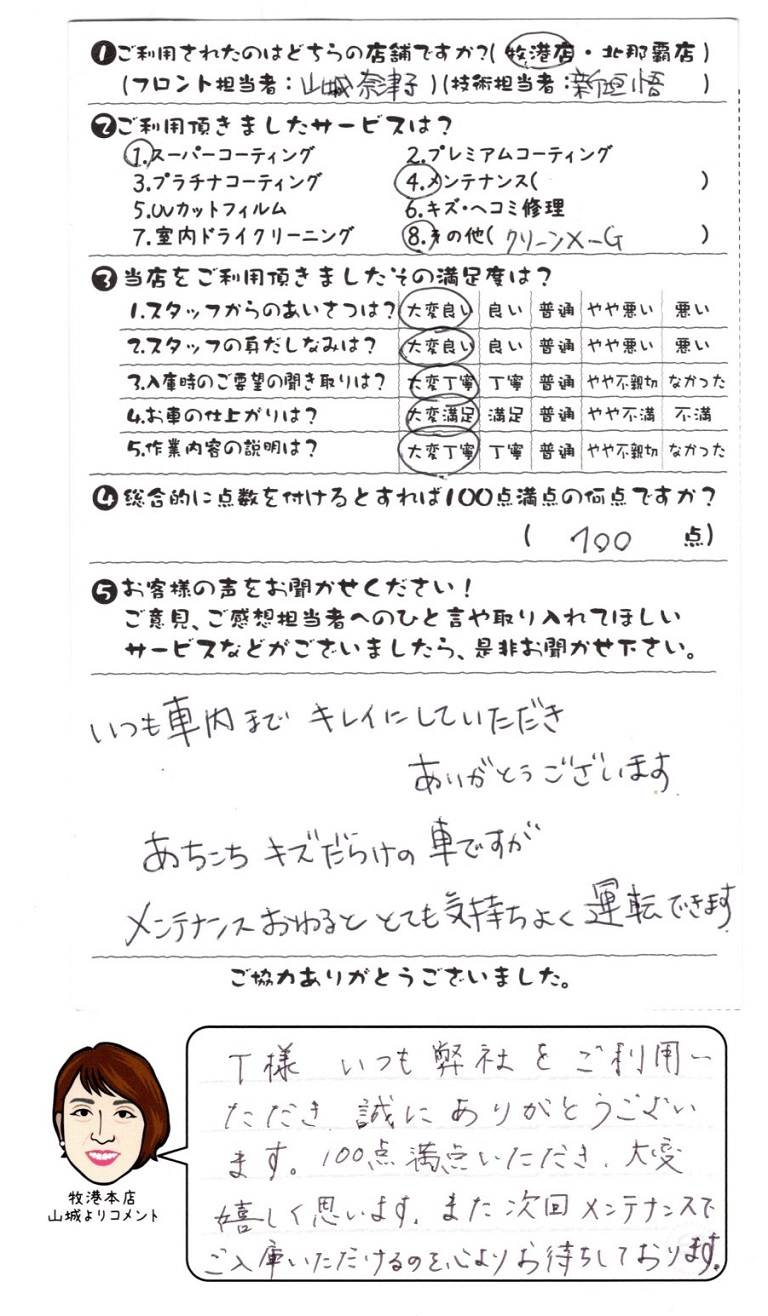 ❶ご利用されたのはどちらの店舗ですか?(牧港店・北那覇店)
(フロント担当者:山城奈津子)(技術担当者:新垣悟)
❷ご利用頂きましたサービスは?
1.スーパーコーティング 2.プレミアムコーティング
3.プラチナコーティング 4.メンテナンス( )
5.UVカットフィルム 6.キズ・ヘコミ修理
7.室内ドライクリーニング 8.その他(クリーンX-G)
❸当店をご利用頂きましたその満足度は?
1.スタッフからのあいさつは? 大変良い 良い 普通 やや悪い 悪い
2.スタッフの身だしなみは? 大変良い 良い 普通 やや悪い 悪い
3.入庫時のご要望の聞き取りは? 大変丁寧 丁寧 普通 やや不親切 なかった
4.お車の仕上がりは? 大変満足 満足 普通 やや不満 不満
5.作業内容の説明は? 大変丁寧 丁寧 普通 やや不親切 なかった
❹総合的に点数を付けるとすれば100点満点の何点ですか?
(100点)
❺お客様の声をお聞かせください!
ご意見、ご感想担当者へのひと言や取り入れてほしい
サービスなどがございましたら、是非お聞かせ下さい。
いつも車内まで キレイにしていただき
ありがとうございます
あちこち キズだらけの 車ですが
メンテナンスおわると とても気持ちよく 運転できます
ご協力ありがとうございました。
T様 いつも弊社をご利用い
ただき 誠にありがとうござい
ます。100点満点いただき、大変
嬉しく思います。また次回メンテナンスで
ご入庫いただけるのを心よりお待ちしております。
牧港本店
山城よりコメント